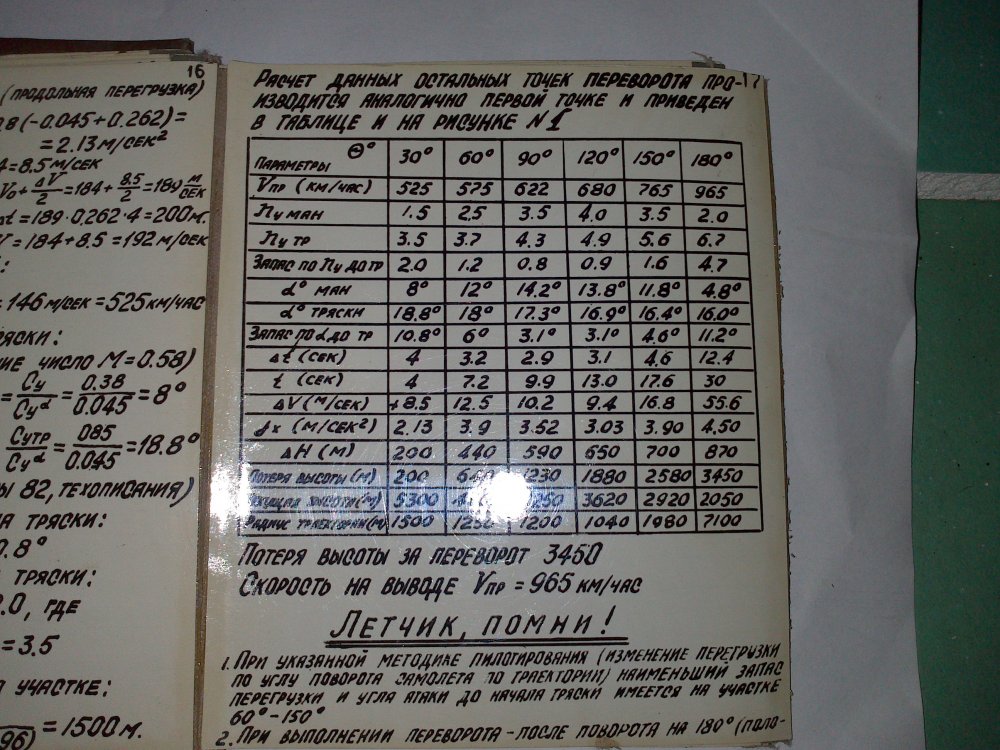 16
(ПРОДОЛЬНАЯ ПЕРЕГРУЗКА)
.8(-0.045+0.262)=
=2.13 М/СЕК²
4=8.5 М/СЕК
V₀+ΔV/2=184+8.5/2=189 М/СЕК
Δt=189·0.262·4=200М.
V=184+8.5=192 М/СЕК
:
=146 М/СЕК=525 КМ/ЧАС
РЯСКИ:
ИЕ ЧИСЛО М=0.58)
=Cy/Cyᵅ=0.38/0.045=8°
Cyтр/Cyᵅ=085/0.045=18.8°
Ы 82, ТЕХОПИСАНИЯ)
ЛА ТРЯСКИ:
0.8°
ТРЯСКИ:
.0, ГДЕ
=3.5
УЧАСТКЕ:
96)=1500М.
17
РАСЧЕТ ДАННЫХ ОСТАЛЬНЫХ ТОЧЕК ПЕРЕВОРОТА ПРО-
ИЗВОДИТСЯ АНАЛОГИЧНО ПЕРВОЙ ТОЧКЕ И ПРИВЕДЕН
В ТАБЛИЦЕ И НА РИСУНКЕ №1
ПАРАМЕТРЫ Θ° 30° 60° 90° 120° 150° 180°
Vпр (КМ/ЧАС) 525 575 622 680 765 965
ny МАН 1.5 2.5 3.5 4.0 3.5 2.0
ny ТР 3.5 3.7 4.3 4.9 5.6 6.7
ЗАПАС ПО ny ДО ТР 2.0 1.2 0.8 0.9 1.6 4.7
α° МАН 8° 12° 14.2° 13.8° 11.8° 4.8°
α° ТРЯСКИ 18.8° 18° 17.3° 16.9° 16.4° 16.0°
ЗАПАС ПО α ДО ТР 10.8° 6° 3.1° 3.1° 4.6° 11.2°
Δt (СЕК) 4 3.2 2.9 3.1 4.6 12.4
t (СЕК) 4 7.2 9.9 13.0 17.6 30
ΔV (М/СЕК) +8.5 12.5 10.2 9.4 16.8 55.6
jx (М/СЕК²) 2.13 3.9 3.52 3.03 3.90 4.50
ΔH (М) 200 440 590 650 700 870
ПОТЕРЯ ВЫСОТЫ (М) 200 640 1230 1880 2580 3450
ВЫСОТЫ (М) 5300 3620 2920 2050
РАДИУС ТРАЕКТОРИИ (М) 1500 1200 1040 1980 7100
ПОТЕРЯ ВЫСОТЫ ЗА ПЕРЕВОРОТ 3450
СКОРОСТЬ НА ВЫВОДЕ Vпр = 965 КМ/ЧАС
ЛЕТЧИК, ПОМНИ!
1. ПРИ УКАЗАННОЙ МЕТОДИКЕ ПИЛОТИРОВАНИЯ (ИЗМЕНЕНИЕ ПЕРЕГРУЗКИ
ПО УГЛУ ПОВОРОТА САМОЛЕТА ПО ТРАЕКТОРИИ) НАИМЕНЬШИЙ ЗАПАС
ПЕРЕГРУЗКИ И УГЛА АТАКИ ДО НАЧАЛА ТРЯСКИ ИМЕЕТСЯ НА УЧАСТКЕ
60°-150°
2. ПРИ ВЫПОЛНЕНИИ ПЕРЕВОРОТА - ПОСЛЕ ПОВОРОТА НА 180° (ПОЛО-